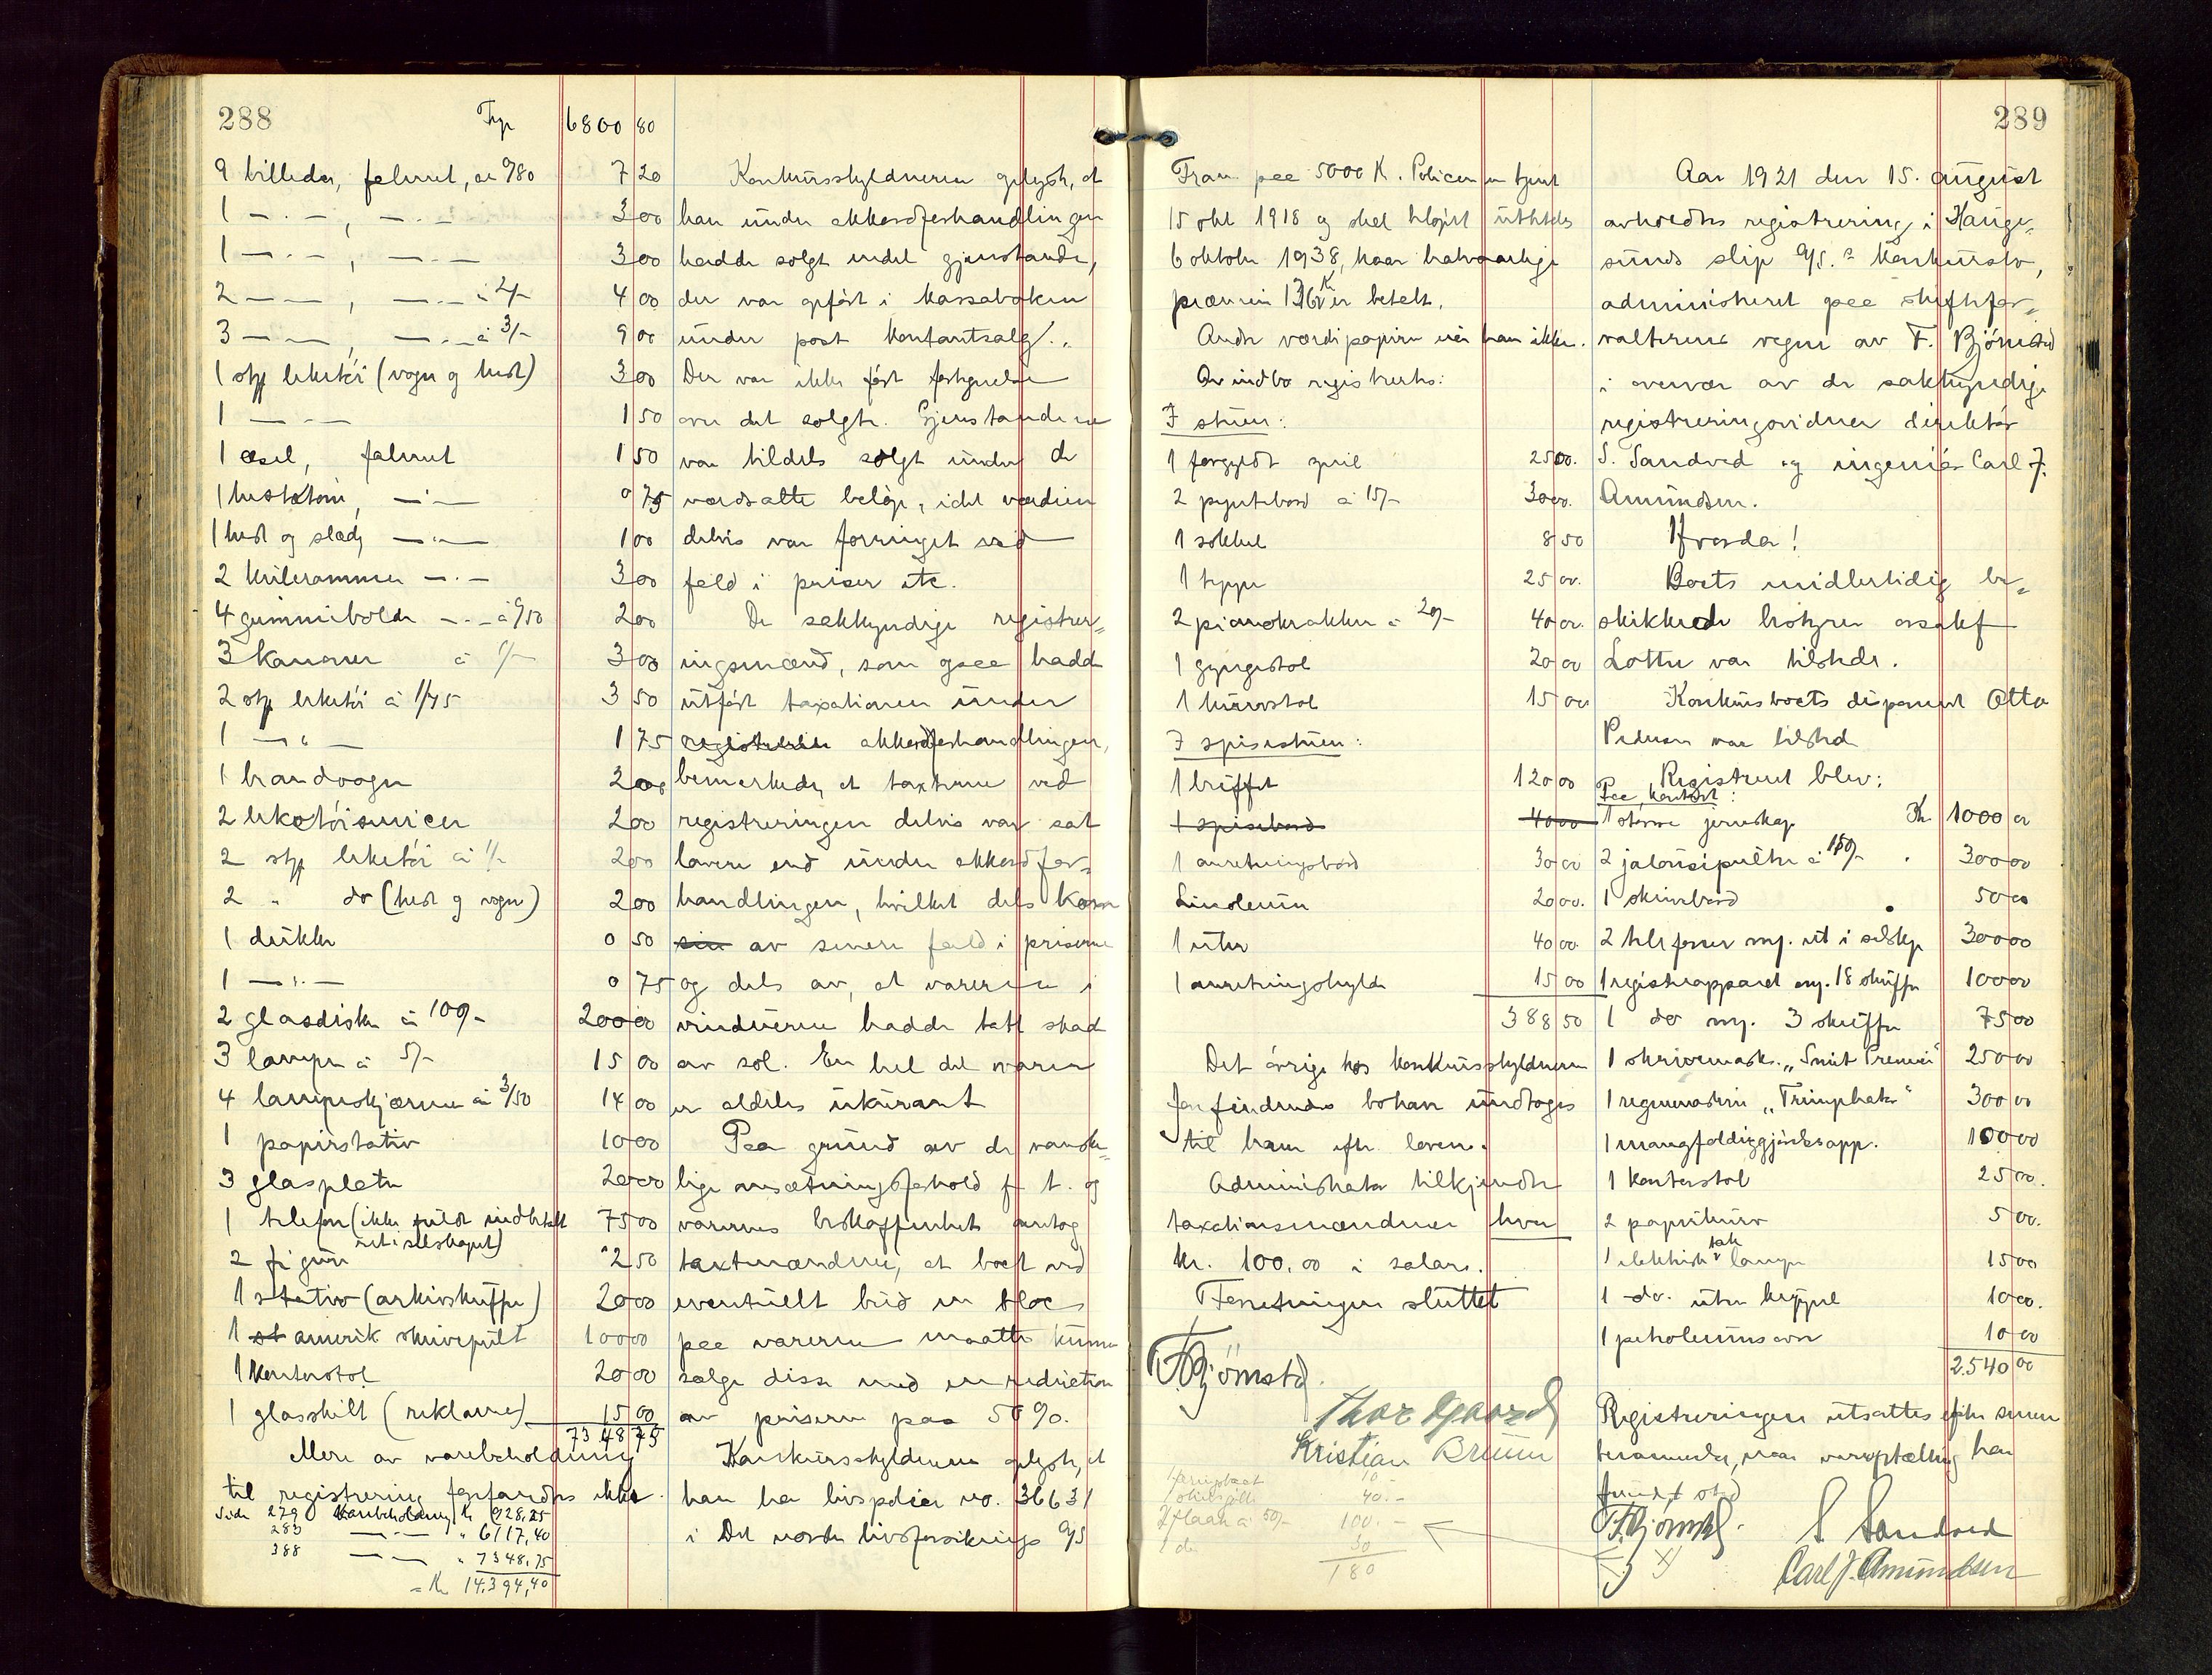 288
Trp 6800 80
9 billeder, falmet, a 0/80 7 20
1 — . — , — . — 3 00
1 — . — , — . — 3 00
2 — — , — . — à 2/- 4 00
3 — — , — . — à 3/- 9 00
1 stk leketøi (vogn og hest) 3 00
1 — — 1 50
1 æsel, falmet 1 50
1 — " — 0 75
1 hest og slæde — " — 1 00
2 — . — 3 00
4 gummibolde — . — à 0/50 2 00
3 Kanoner à 1/- 3 00
2 stk leketøi à 1/75 3 50
1 — " — 1 75
1 brandvogn 2 00
2 leketøiservicer 2 00
2 stk leketøi à 1/- 2 00
2 " do (hest og vogn) 2 00
1 dukke 0 50
1 — " — 0 75
2 glasdiske à 100/- 200 00
3 lamper à 5/- 15 00
4 lampeskjærme à 3/50 14 00
1 papirstativ 10 00
3 glasplater 20 00
1 telefon (ikke fuldt indbetalt
ut i selskapet) 75 00
2 figurer 2 50
1 stativ (arkivskuffer) 20 00
1 st amerik skrivepult 100 00
1 Kontorstol 20 00
1 glasskilt (reklame) 15 00
7348 75
Mere av varebeholdning
til registrering forfandtes ikke.
Side 279 Varebeholdning kr 928,25
283 — " — " 6117,40
388 — — " 7348,75
= Kr 14,394,40
Konkursskyldneren oplyste, at
han under akkordforhandlingen
hadde solgt endel gjenstande,
der var opført i kassaboken
under post Kontantsalg.
Der var ikke ført fortegnelse
over det solgte. Gjenstandene
var tildels solgt under de
værdsatte beløp, idet værdien
delvis var forringet ved
fald i priser etc.
De sakkyndige registrer=
ingsmænd, som ogsaa hadde
utført taxationen under
registreren akkordforhandlingen,
bemerkede, at taxterne ved
registreringen delvis var sat
lavere end under akkordfor=
handlingen, hvilket dels kom
sin av senere fald i priserne
og dels av, at varerne i
vinduerne hadde tatt skade
av sol. En hel del varer
er aldeles ukurant
Paa grund av de vanske=
lige omsætningsforhold f. t. og
varernes beskaffenhet antog
taxtmændene, at boet ved
eventuellt bud en bloc
paa varerne maatte kunne
sælge disse med en reduction
av priserne paa 50%.
Konkursskyldneren oplyste, at
han har livspolice no. 36631
i Det norske livsforsikrings A/S
289
Fram paa 5000 K. Policen er tegnet
15 okt 1918 og skal utbetales
6 oktober 1938, hvor halvaarlige
præmien 136 K er betalt.
Andre værdipapirer eier han ikke.
Av indbo registrertes:
I stuen:
1 forgyldt speil 25 00.
2 pyntebord à 15/- 30 00.
1 sokkel 8 50
1 teppe 25 00.
2 pianokrakker à 20/- 40 00.
1 gyngestol 20 00
1 kurvstol 15 00
I spisestuen:
1 buffet 120 00
1 spisebord 40 00
1 anretningsbord 30 00
Linoleum 20 00.
1 uhr 40 00
1 anretningshylde 15 00
388 50
Det øvrige hos konkursskyldneren
forfindende bohave undtoges
til ham efter loven.
Administrator tilkjendte
taxationsmændene hver
kr. 100.00 i salær.
Forretningen sluttet
F. Bjørnstad.
Thor Gaard
Kristian Bruun
1 pringbaat 10 -
40. -
2 flaater à 50/- 100. -
1 do 30
180
Aar 1921 den 15. august
avholdtes registrering i Hauge=
sunds slip A/S.s Konkursbo,
administreret paa skifterfor=
valterens vegne av F. Bjørnstad
i overvær av de sakkyndige
registreringsvidner direktør
S. Sandved og ingeniør Carl J.
Amundsen.
Hvorda!
Boets midlertidig be=
skikkede bestyrer orsakf
Lothe var tilstede.
Konkursboets disponent Otto
Pedersen var tilstede
Registreret blev:
Paa kontoret:
1 større jernskap Kr. 1000 00
2 jalousipulter à 150/- . 300 00
1 skrivebord 50 00
2 telefoner mrk. ut i selskap 300 00
1 registrapparat m. 18 skuffer 100 00
1 do m. 3 skuffer 75 00
1 skrivemask. "Smit Premier" 250 00
1 regnemaskin "Triumphator" 300 00
1 mangfoldiggjørelsesapp. 100 00
1 Kontorstol 25 00.
2 papirkurv 5 00.
1 elektrisk tak lampe 15 00
1 do. uten kuppel 10 00.
1 petroleumsovn 10 00
2.540 00
Registreringen utsattes efter senere
berammelse, naar vareoptælling har
fundet sted
F. Bjørnstad. S Sandved
Carl J. Amundsen